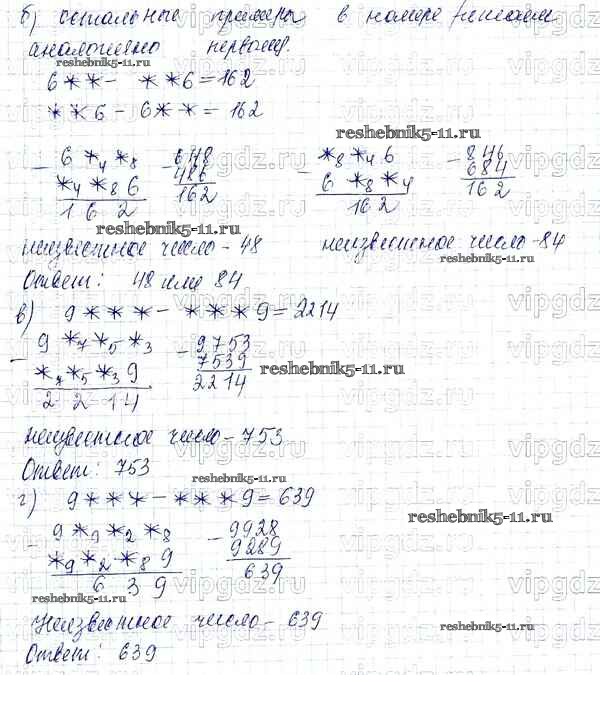 б) остальные примеры в номере решаем
аналогично первому.
reshebnik5-11.ru
6**- **6=162
**6-6**=162
reshebnik5-11.ru
- 6 *₄ *₈ - 648 - *₈ *₄ 6 - 846
*₄ *₈ 6 486 6 *₈ *₄ 684
1 6 2 162 162 162
reshebnik5-11.ru
неизвестное число - 48 неизвестное число - 84
Ответ: 48 или 84
в) 9***- ***9=2214
- 9 *₇ *₅ *₃ - 9753
*₇ *₅ *₃ 9 7539
2 2 1 4 2214
reshebnik5-11.ru
неизвестное число - 753
Ответ: 753
reshebnik5-11.ru
г) 9***- ***9=639
reshebnik5-11.ru
- 9 *₉ *₂ *₈ - 9928
*₉ *₂ *₈ 9 9289
6 3 9 639
reshebnik5-11.ru
Неизвестное число - 639
reshebnik5-11.ru
Ответ: 639
vipgdz.ru